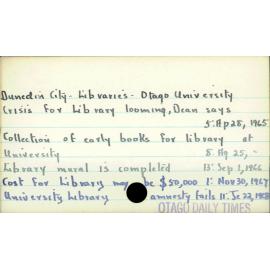 Dunedin City - Libraries - Otago University
Crisis for Library looming, Dean says
5: Ap 28, 1965
Collection of early books for library at
University 8: Ag 25, -
Library mural is completed 13: Sep 1, 1966
Cost for Library may be $50,000 1: Nov 30, 1967
University Library amnesty fails 11: Je 22, 1968
OTAGO DAILY TIMES